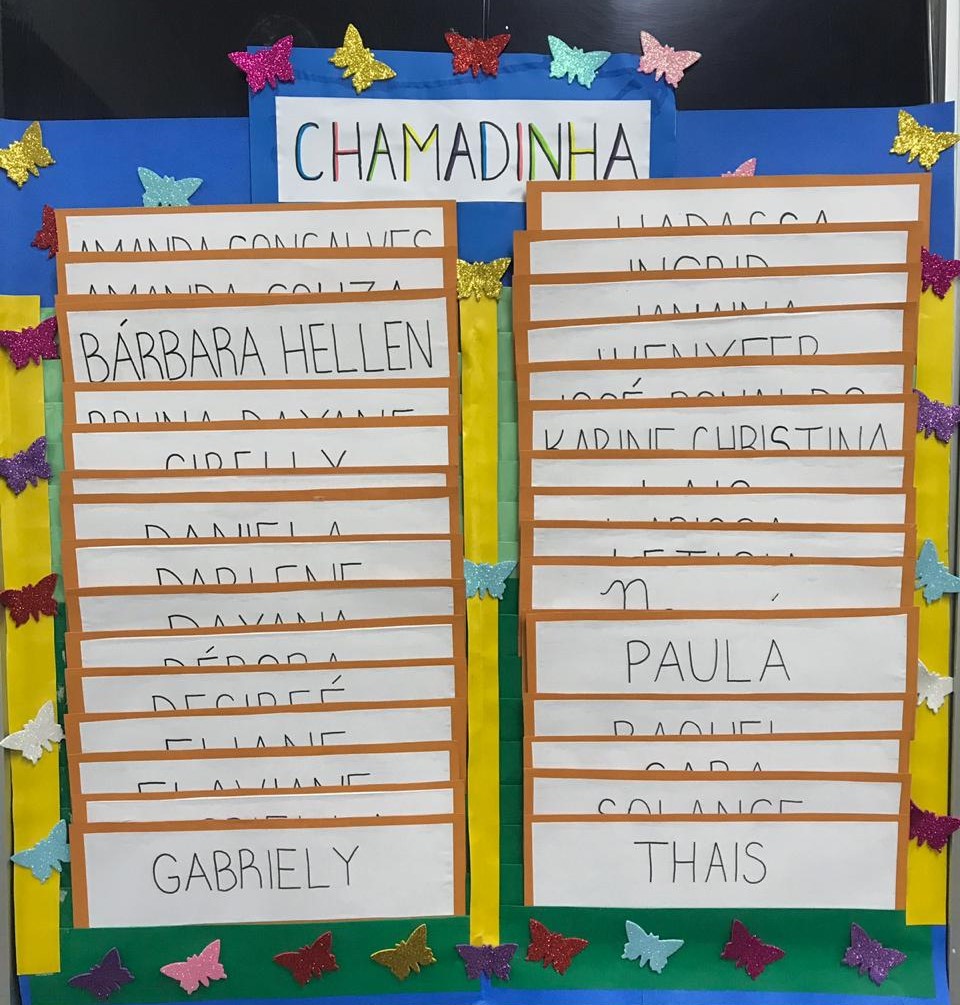 CHAMADINHA
AMANDA GONÇALVES
AMANDA SOUZA
BÁRBARA HELLEN
BRUNA DAYANE
CIBELLY
DANIELA
DARLENE
DAYANA
DÉBORA
DECIREÉ
ELIANE
FLAVIANE
GABRIELY
HADASSA
INGRID
JANAINA
JOSÉ RONALDO
KARINE CHRISTINA
LAIS
LARISSA
LETICIA
PAULA
RAQUEL
SARA
SOLANGE
THAIS